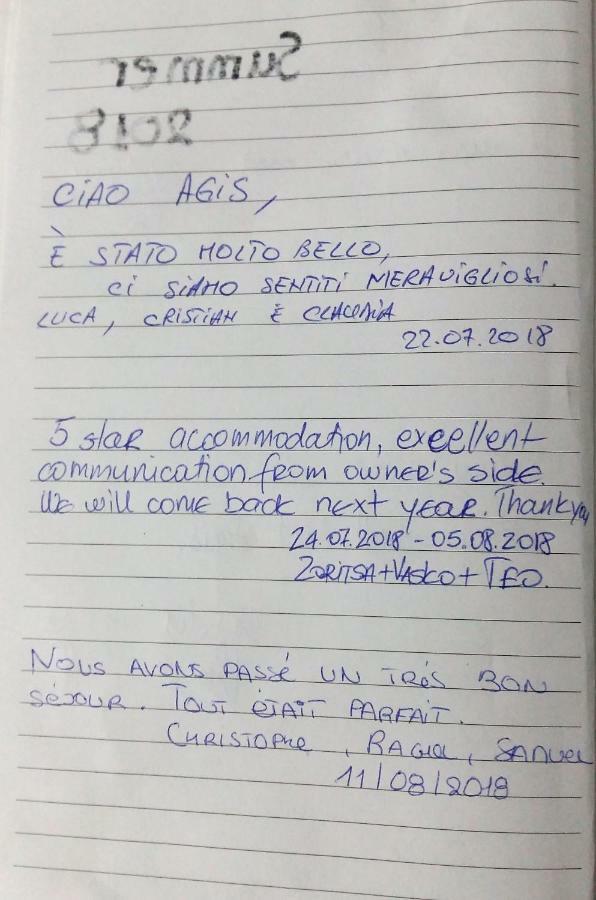 Summer
2018
CIAO AGIS,
È STATO MOLTO BELLO,
CI SIAMO SENTITI MERAVIGLIOSI.
LUCA, CRISTIAN E CLAUDIA
22.07.2018
5 star accommodation, excellent
communication from owner's side.
We will come back next year. Thank you
24.07.2018 - 05.08.2018
ZORITSA+VASKO+TEO.
NOUS AVONS PASSÉ UN TRÉS BON
SÉJOUR. TOUT ÉTAIT PARFAIT.
CHRISTOPHE, SAMUEL
11/08/2018